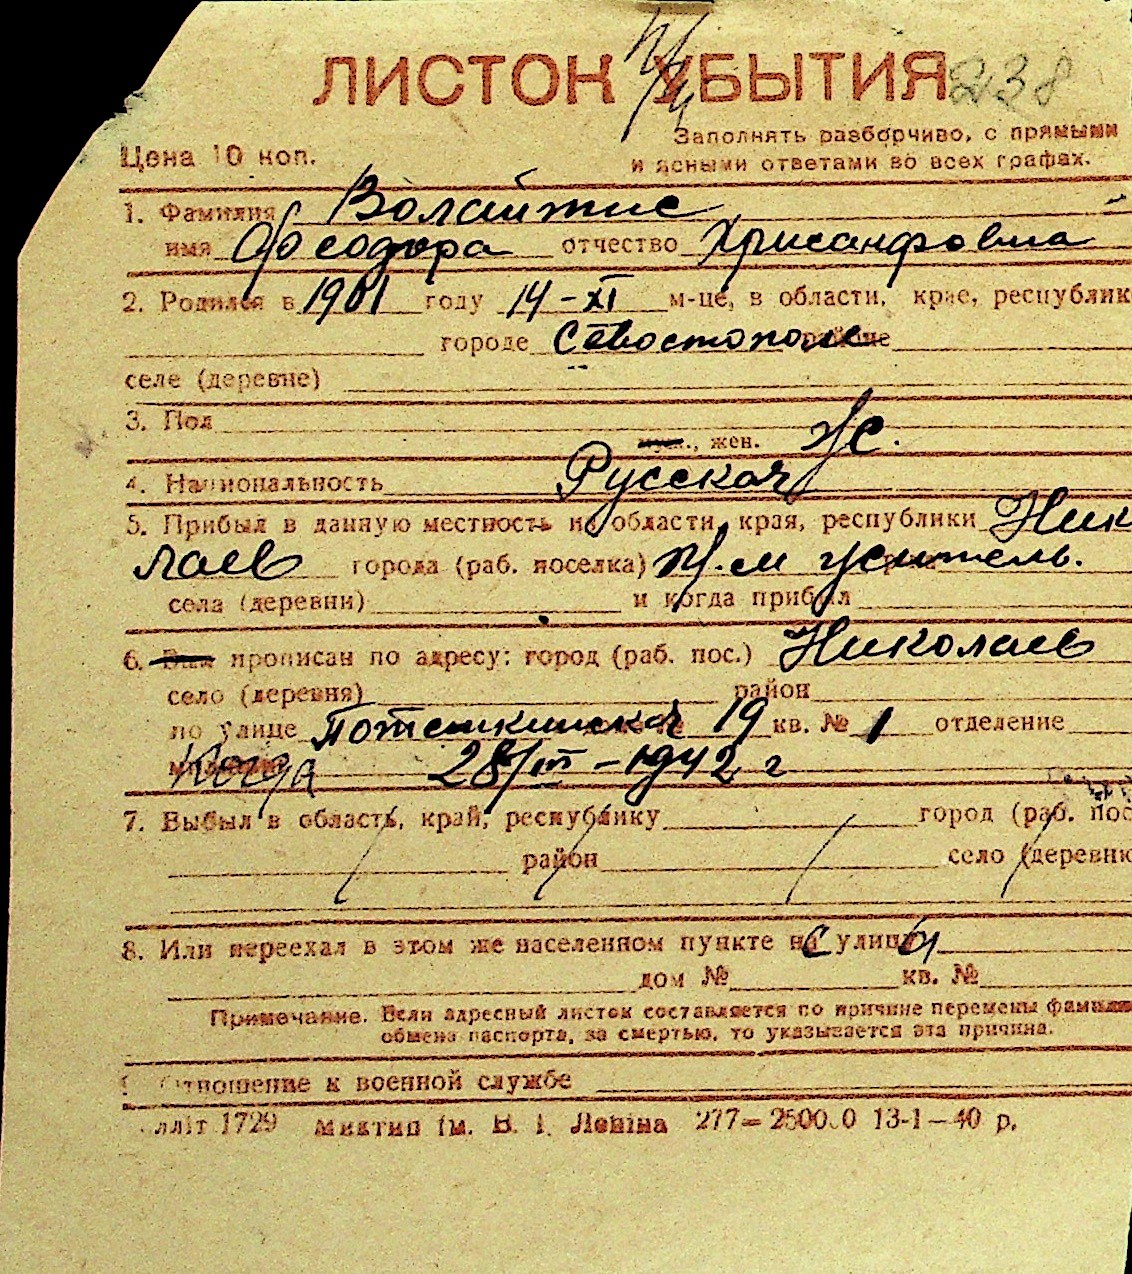 ЛИСТОК УБЫТИЯ 238
Заполнять разборчиво, с прямыми
Цена 10 коп. и ясными ответами во всех графах.
1. Фамилия Волайтис
имя Феодора отчество Хрисанфовна
2. Родился в 1901 году 14-XI м-це, в области, крае, республик
городе Севостополе районе
селе (деревне)
3. Пол
муж., жен. ж.
4. Национальность Русская
5. Прибыл в данную местность из области, края, республики Нико
лаев города (раб. поселка)
села (деревни) и когда прибыл
6. Был прописан по адресу: город (раб. пос.) Николаев
село (деревня) район
по улице Потемкинская 19 кв. № 1 отделение
Когда 28/III-1942 г
7. Выбыл в область, край, республику город (раб. пос
район село (деревню
8. Или переехал в этом же населенном пункте на улицу
дом № кв. №
Примечание. Если адресный листок составляется по причине перемены фамилии
обмена паспорта, за смертью, то указывается эта причина.
Отношение к военной службе
лліт 1729 Миктип ім. В. І. Леніна 277—25000 13-1—40 р.